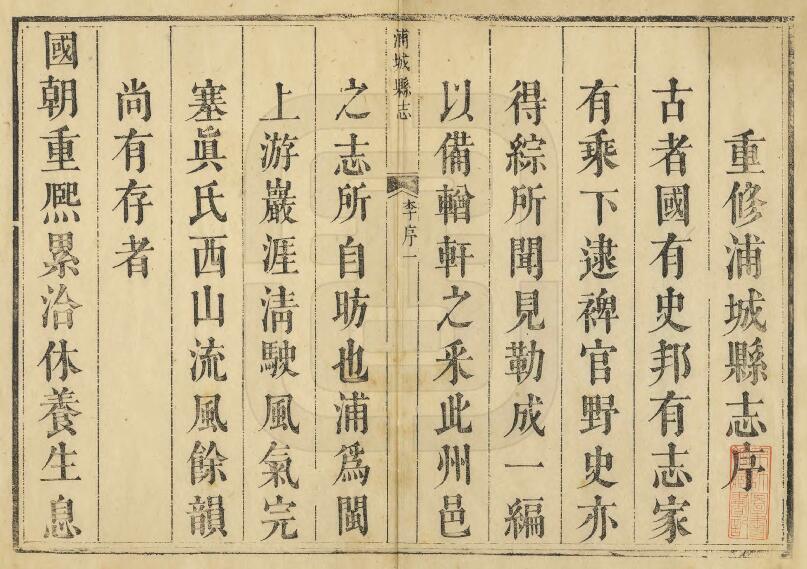 重修浦城縣志序
古者國有史邦有志家
有乘下逮稗官野史亦
得綜所聞見勒成一編
以備輶軒之采此州邑
浦城縣志
李序一
之志所自昉也浦爲閩
上游巖涯淸駛風氣完
塞眞氏西山流風餘韻
尚有存者
國朝重熈累洽休養生息